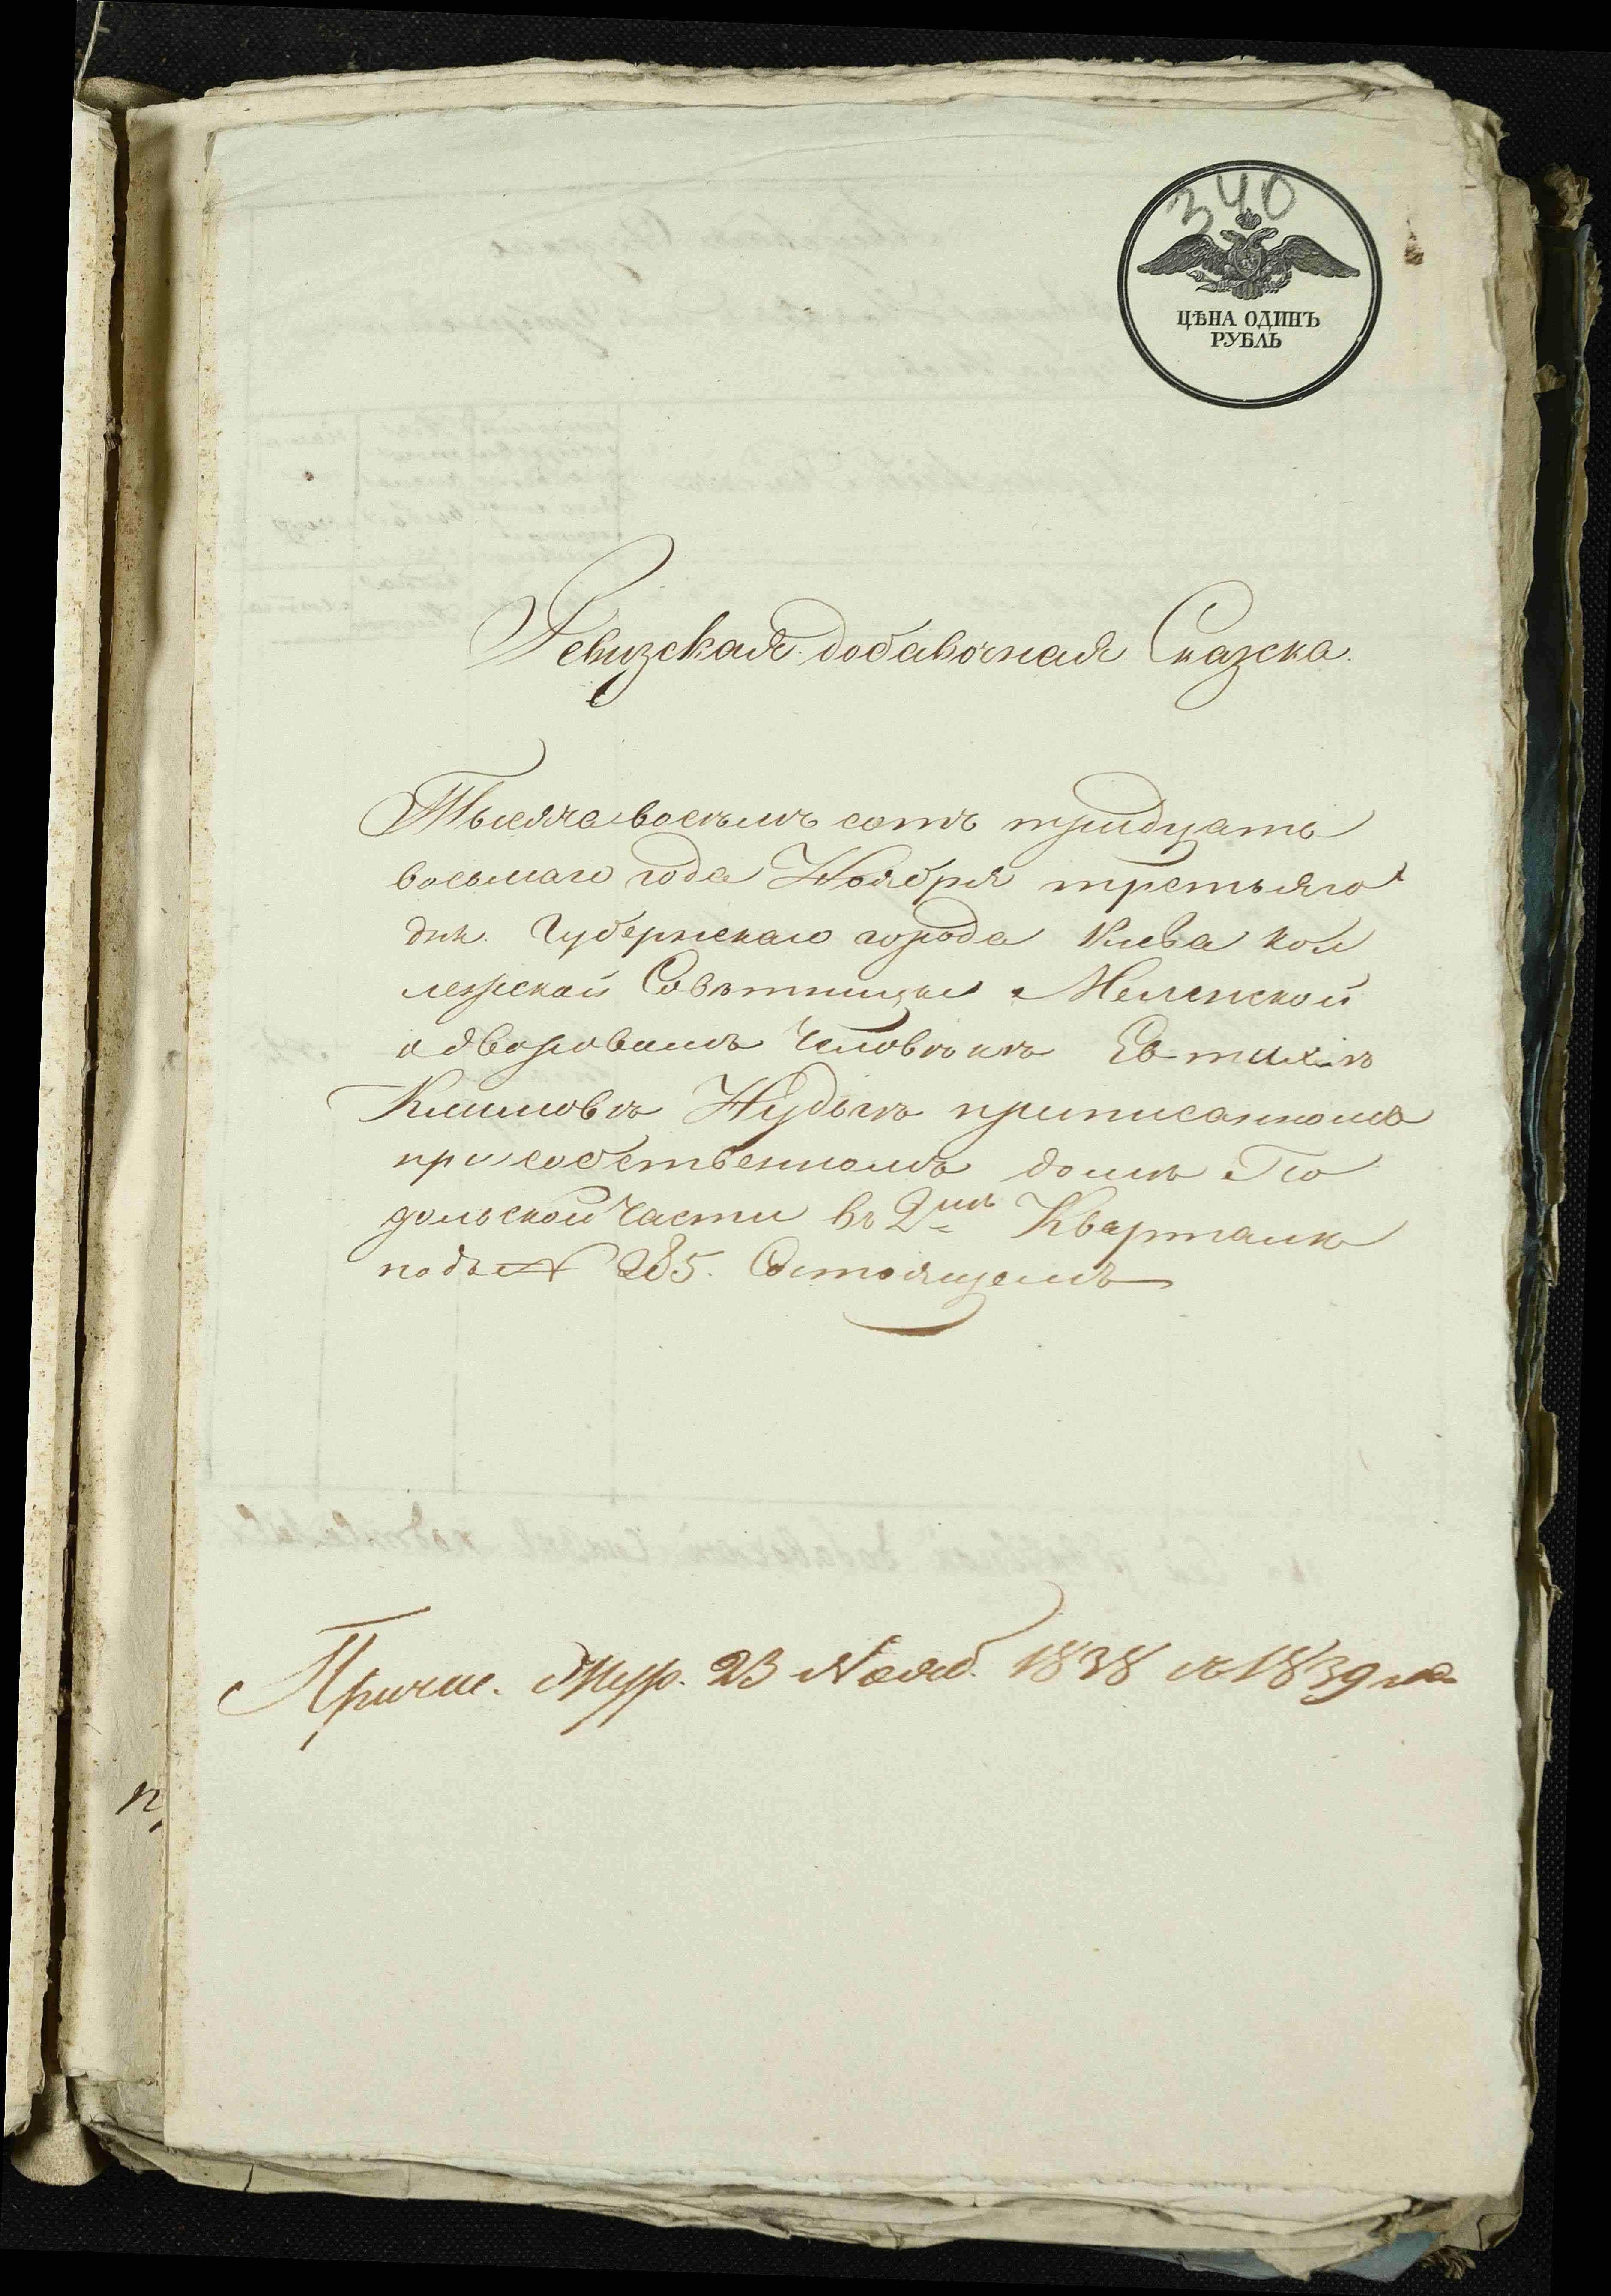 340
ЦѢНА ОДИНЪ
РУБЛЬ
Ревизская добавочная Сказка.
Тысяча восемъ сотъ тридцать
восьмаго года Ноября третьяго
дня. Губернскаго города Киева кол
лежской Совѣтницы Меленской
о дворовомъ человѣкѣ Евтихіѣ
Климовѣ Нудьгѣ приписанномъ
при собственномъ домѣ По
дольской части въ 2мъ Кварталѣ
подъ № 285. Состоящемъ
Причис. Жур. 23 Нояб. 1838 съ 1839 го